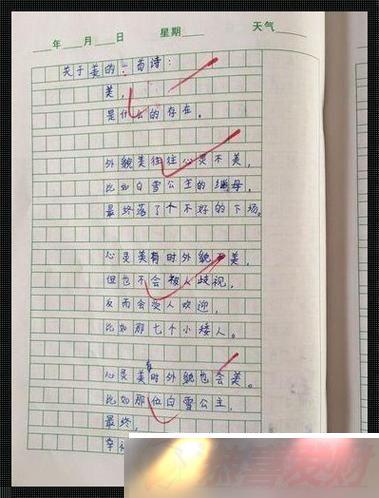 年 月 日 星期 天气
关于美的一首诗:
美,
是什么的存在。
外貌美往往心灵不美,
比如白雪公主的继母,
最终落了个不好的下场。
心灵美有时外貌不美,
但也不会被人歧视,
反而会受人欢迎,
比如那七个小矮人。
心灵美有时外貌也会美。
比如那位白雪公主,
最终,
幸